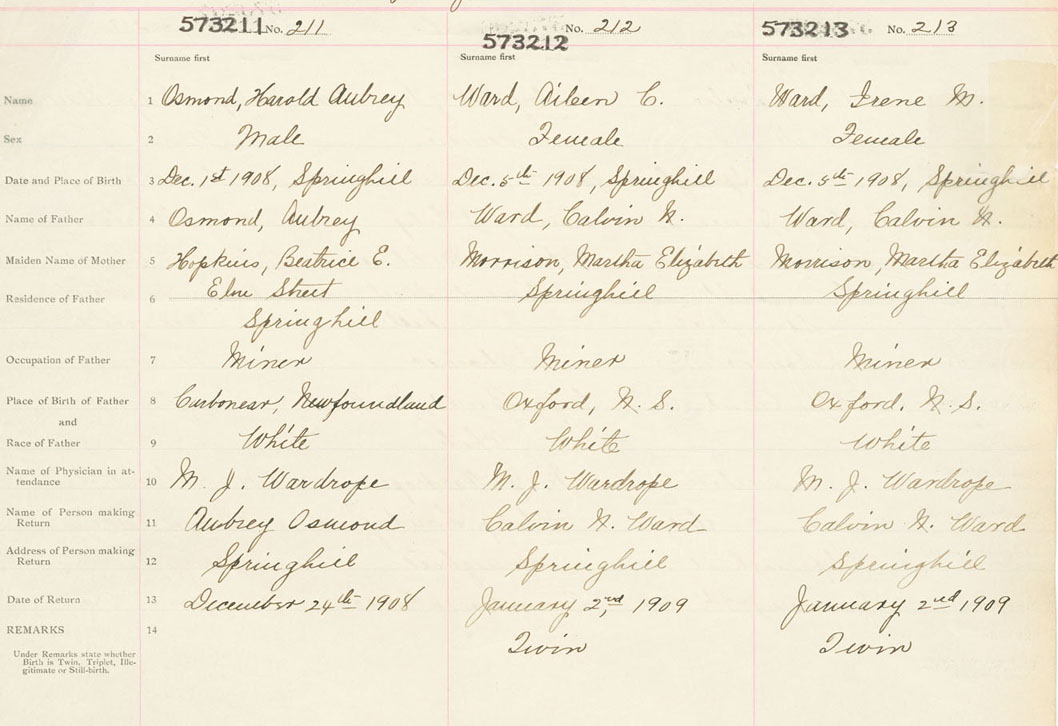 573211 No. 211 573212 No. 212 573213 No. 213
Surname first Surname first Surname first
Name 1 Osmond, Harold Aubrey Ward, Aileen C. Ward, Irene M.
Sex 2 Male Female Female
Date and Place of Birth 3 Dec. 1st 1908, Springhill Dec. 5th 1908, Springhill Dec. 5th 1908, Springhill
Name of Father 4 Osmond, Aubrey Ward, Calvin N. Ward, Calvin N.
Maiden Name of Mother 5 Hopkins, Beatrice E. Morrison, Martha Elizabeth Morrison, Martha Elizabeth
Residence of Father 6 Elm Street Springhill Springhill
Springhill
Occupation of Father 7 Miner Miner Miner
Place of Birth of Father 8 Carbonear, Newfoundland Oxford, N. S. Oxford, N. S.
and
Race of Father 9 White White White
Name of Physician in at-
tendance 10 M. J. Wardrope M. J. Wardrope M. J. Wardrope
Name of Person making
Return 11 Aubrey Osmond Calvin N. Ward Calvin N. Ward
Address of Person making
Return 12 Springhill Springhill Springhill
Date of Return 13 December 24th 1908 January 2nd, 1909 January 2nd 1909
REMARKS 14 Twin Twin
Under Remarks state whether
Birth is Twin, Triplet, Ille-
gitimate or Still-birth.